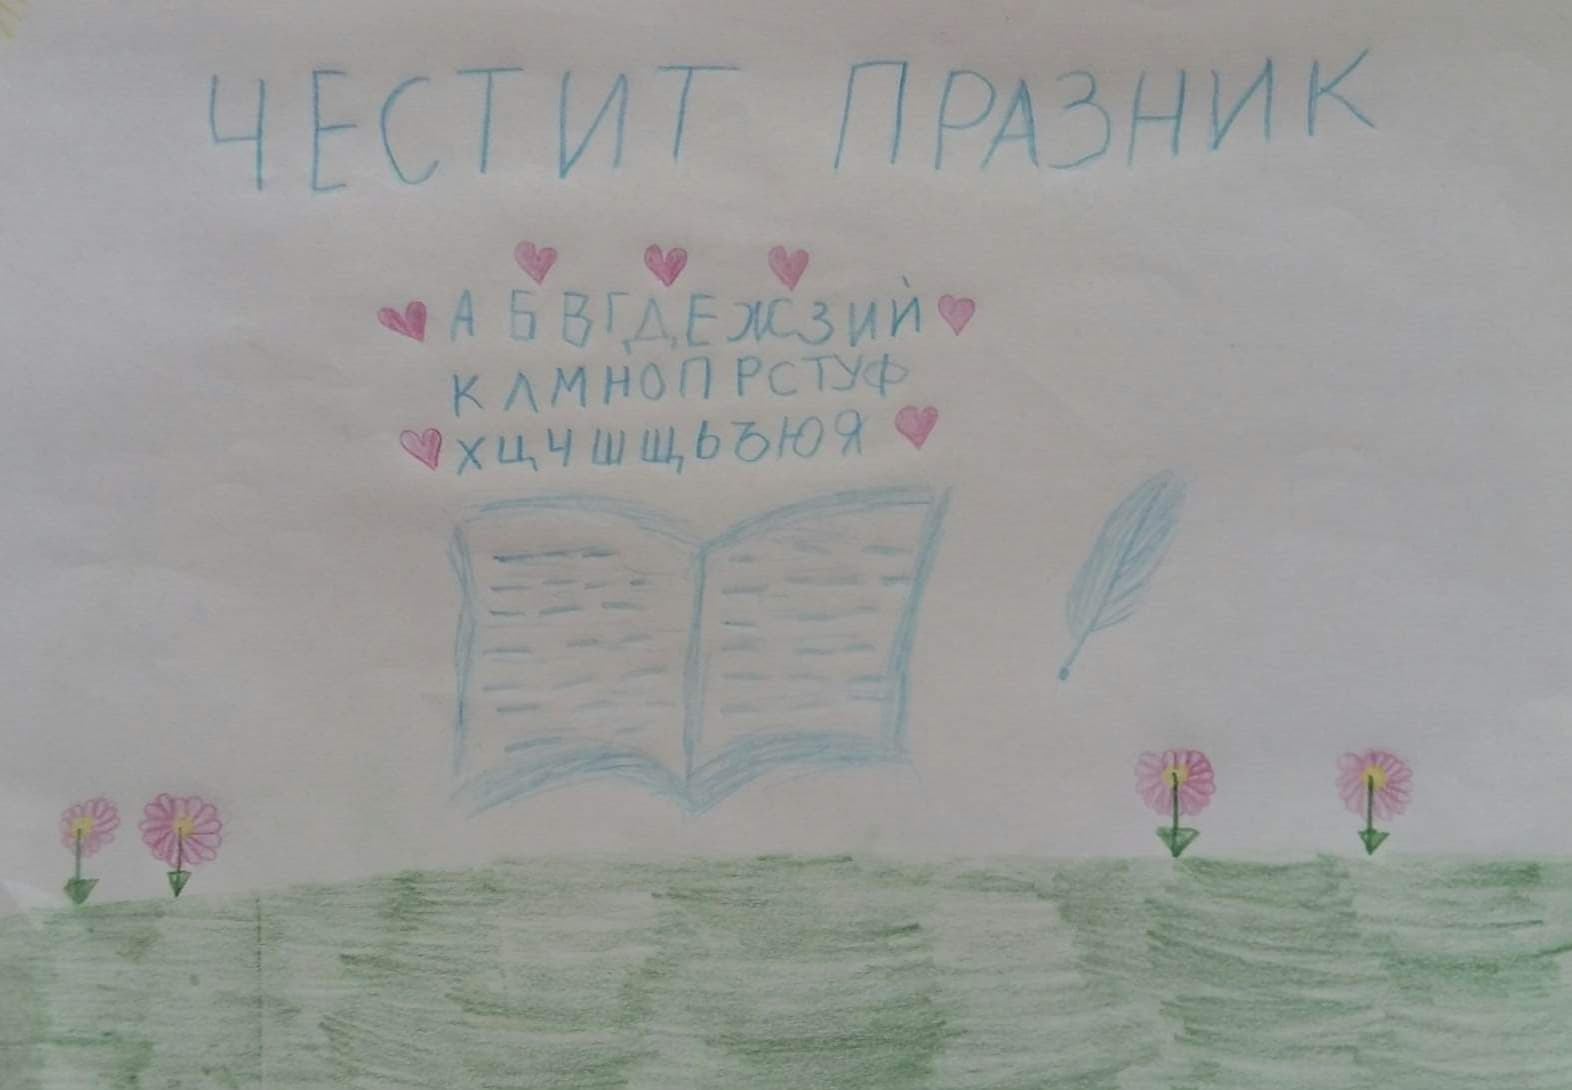 ЧЕСТИТ ПРАЗНИК
А Б В Г Д Е Ж З И Й
К Л М Н О П Р С Т У Ф
Х Ц Ч Ш Щ Ь Ъ Ю Я